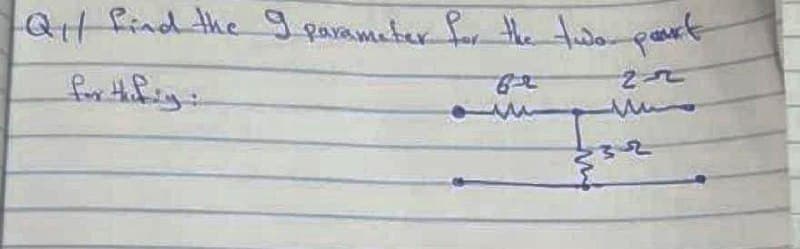 Q1/ find the g parameter for the two port
for the fig:
6Ω 2Ω
3Ω